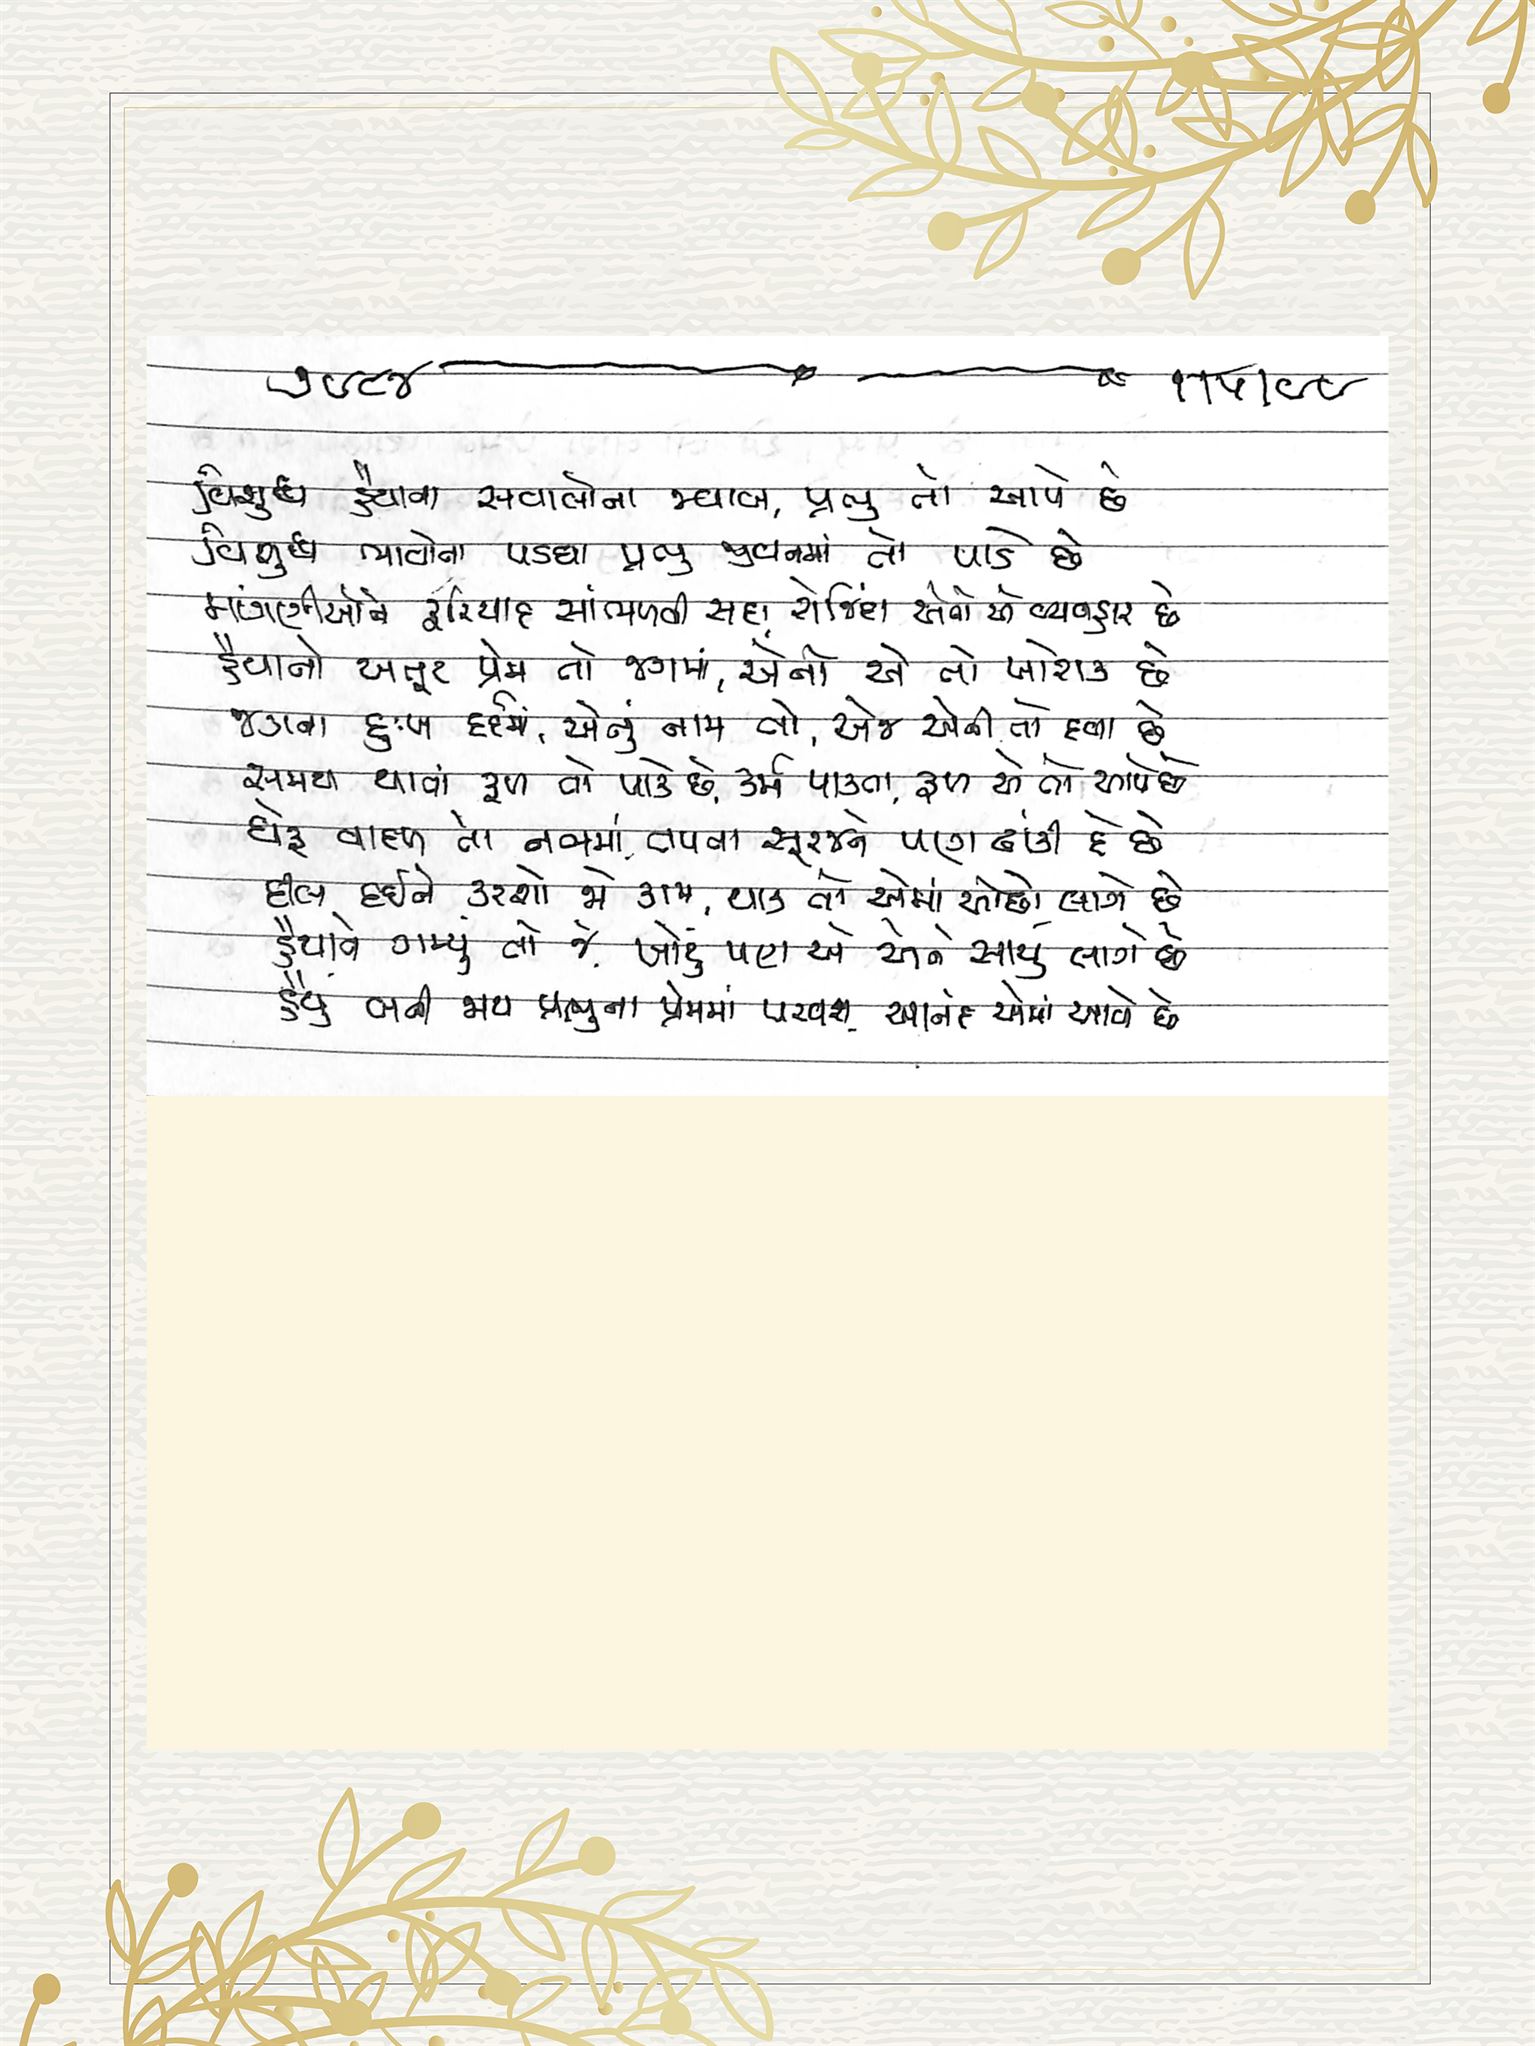 ૭૯૮૪ ૧।૫।૯૯
વિશુધ્ધ હૈયાના સવાલોના જવાબ, પ્રભુ તો આપે છે
વિશુધ્ધ ભાવોના પડઘા પ્રભુ જીવનમાં તો પાડે છે
માંગણીઓને ફરિયાદ સાંભળવી સદા, રોજિંદા એનો એ વ્યવહાર છે
હૈયાનો અતૂટ પ્રેમ તો જગમાં, એનો એ તો ખોરાક છે
જગના દુઃખ દર્દમાં, એનું નામ તો, એજ એની તો દવા છે
સમય થાતાં ફળ તો પાકે છે, કર્મ પાકતા, ફળ એ તો આપે છે
ઘેરૂ વાદળ તો નભમાં, તપતા સૂરજને પણ ઢાંકી દે છે
દીલ દઈને કરશો જો કામ, થાક તો એમાં ઓછો લાગે છે
હૈયાને ગમ્યું તો જે, ખોટું પણ એ એને સાચું લાગે છે
હૈયું બની જાય પ્રભુના પ્રેમમાં પરવશ, આનંદ એમાં આવે છે